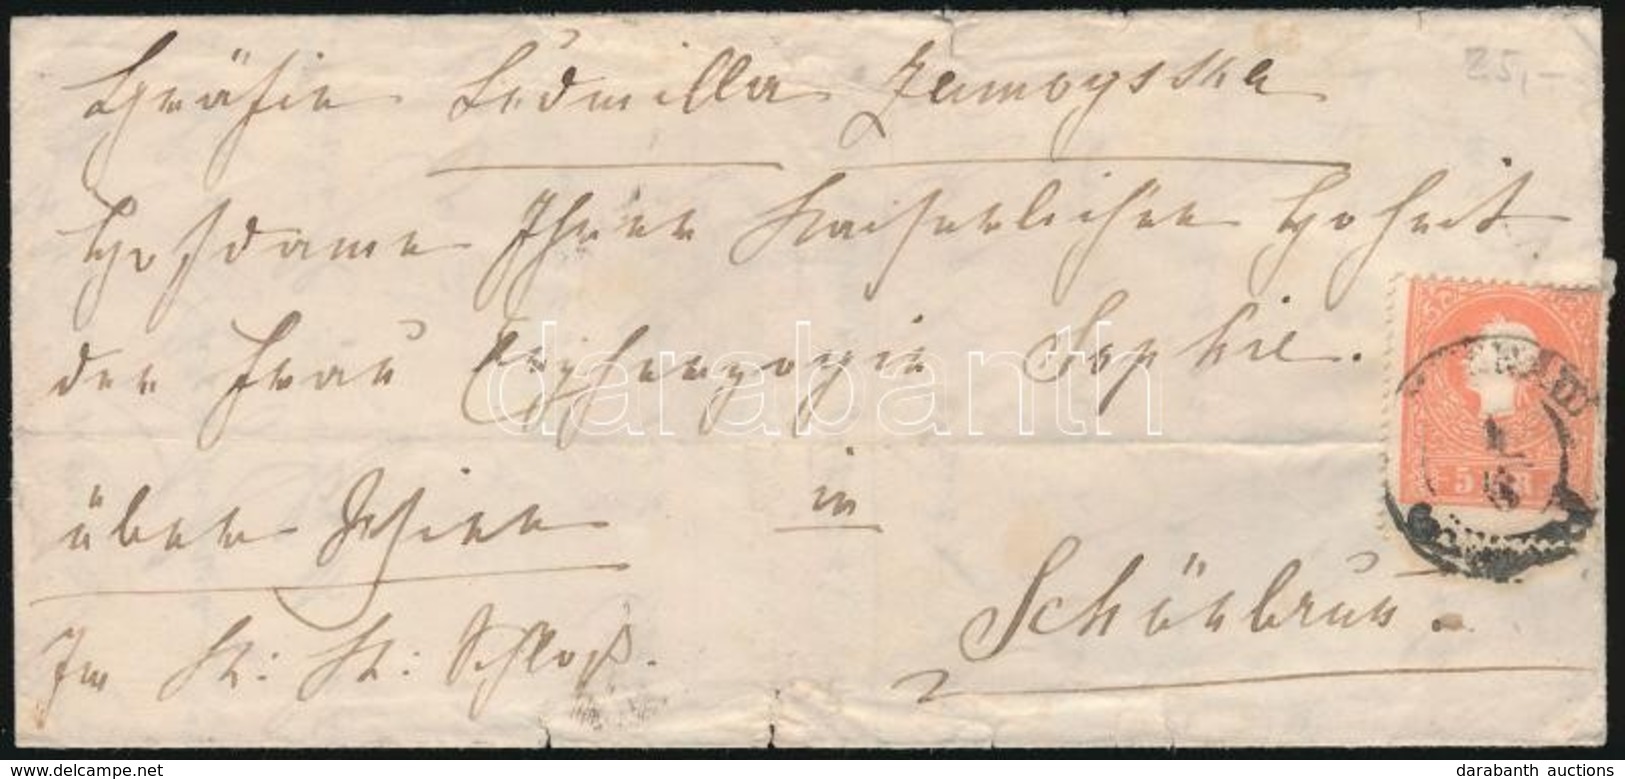 Gräfin Ludmilla Zamoysska
25,-
Hofdame Ihrer Kaiserlichen Hoheit
der Frau Erzherzogin Sophie.
über Wien in
Schönbrun.
Im K: K: Schloß.
5
darabanth
delcampe.net
darabanth auctions